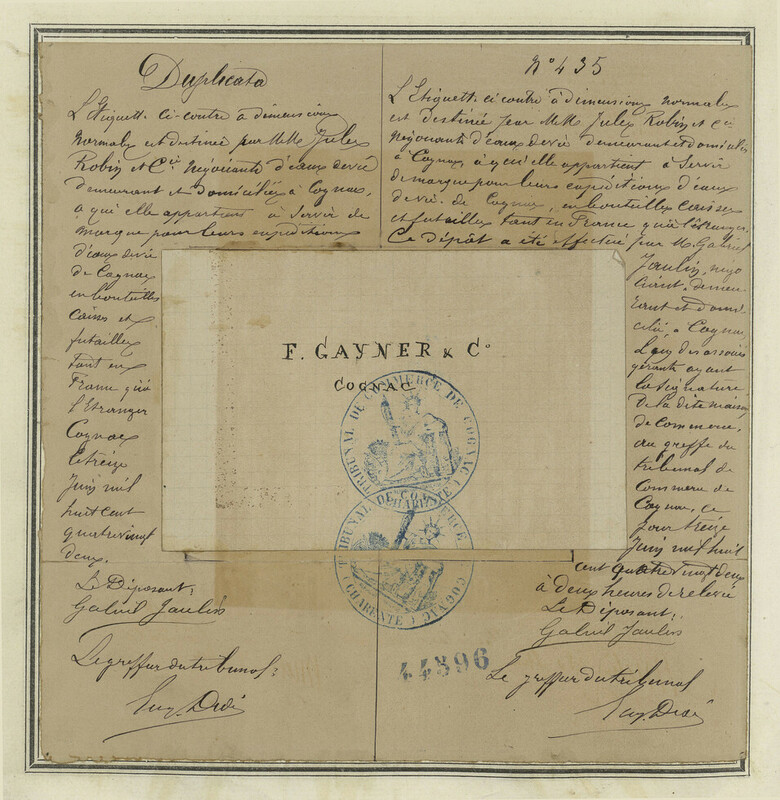 Duplicata
L'Etiquette ci-contre à dimensions
normales est destinée par MM. Jules
Robin et Cie Négociants d'eaux de vie
demeurant et domiciliés à Cognac,
à qui elle appartient à servir de
marque pour leurs expéditions
d'eaux de vie
de Cognac
en bouteilles
caisses et
futailles
tant en
France qu'à
l'Etranger
Cognac
le treize
Juin mil
huit cent
quatre vingt
deux.
Le Déposant:
Gabriel Jaulin
Le greffier du tribunal:
Eug. Didé
N° 435
L'Etiquette ci-contre à dimensions normales
est destinée par MM. Jules Robin et Cie
Négociants d'eaux de vie demeurant et domiciliés
à Cognac à qui elle appartient à servir
de marque pour leurs expéditions d'eaux
de vie de Cognac, en bouteilles caisses
et futailles tant en France qu'à l'étranger.
Ce dépôt a été effectué par M. Gabriel
Jaulin, négo
ciant demeu
rant et domi
cilié à Cognac,
l'un des associés
gérants ayant
la signature
de la dite maison
de commerce,
au greffe du
tribunal de
Commerce de
Cognac, ce
jour treize
Juin mil huit
cent quatre vingt deux
à deux heures de relevée
Le Déposant:
Gabriel Jaulin
Le greffier du tribunal
Eug. Didé
F. GAYNER & Co
COGNAC
TRIBUNAL DE COMMERCE DE COGNAC
(CHARENTE)
TRIBUNAL DE COMMERCE
COGNAC (CHARENTE)
44396